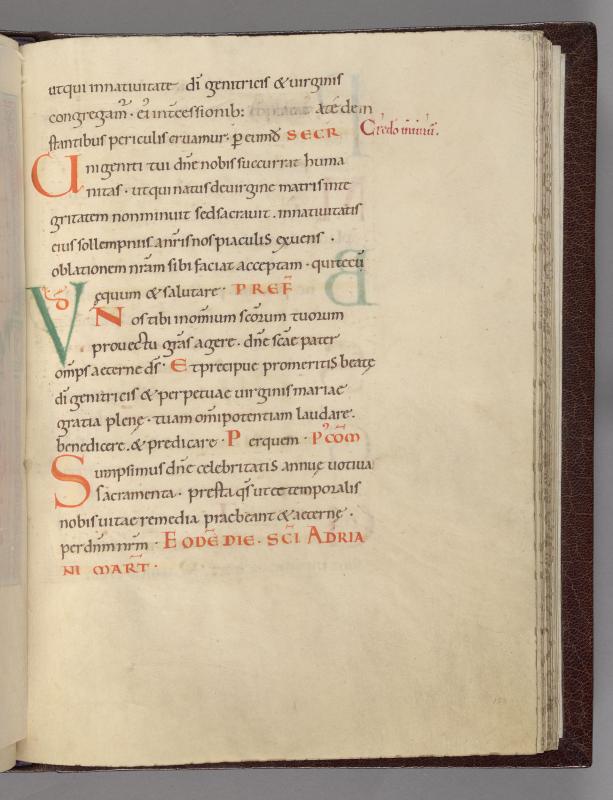 utqui innativitate di genitricis & virginis
congregam̃ · ei int̃cessionib: a te de in
stantibus periculis eruamur · p eund̃ SECR̃
Credo in unū.
Unigeniti tui dñe nobis succurrat huma
nitas · utqui natus devirgine matris inte
gritatem nonminuit sed sacravit . innativitatis
eius sollempniis anr̃is nos piaculis exuens .
oblationem nr̃am sibi faciat acceptam · qui tecū
VD ęquum & salutare · PREF̃
Nos tibi inomium sc̃orum tuorum
provectu gr̃as agere . dñe sc̃ae pater
omp̃s aeterne ds̃ · Et precipue promeritis beatę
di genitricis & perpetuae virginis mariae
gratia plenę · tuam om̃ipotentiam laudare .
benedicere . & predicare · Per quem · P'COM̃
Sumpsimus dñe celebritatis annuę votiva
sacramenta · presta qs̃ ut & temporalis
nobis vitae remedia praebeant & aeternę .
per dñm nr̃m · EODẼ DIE · SC̃I ADRIA
NI MART̃ ·